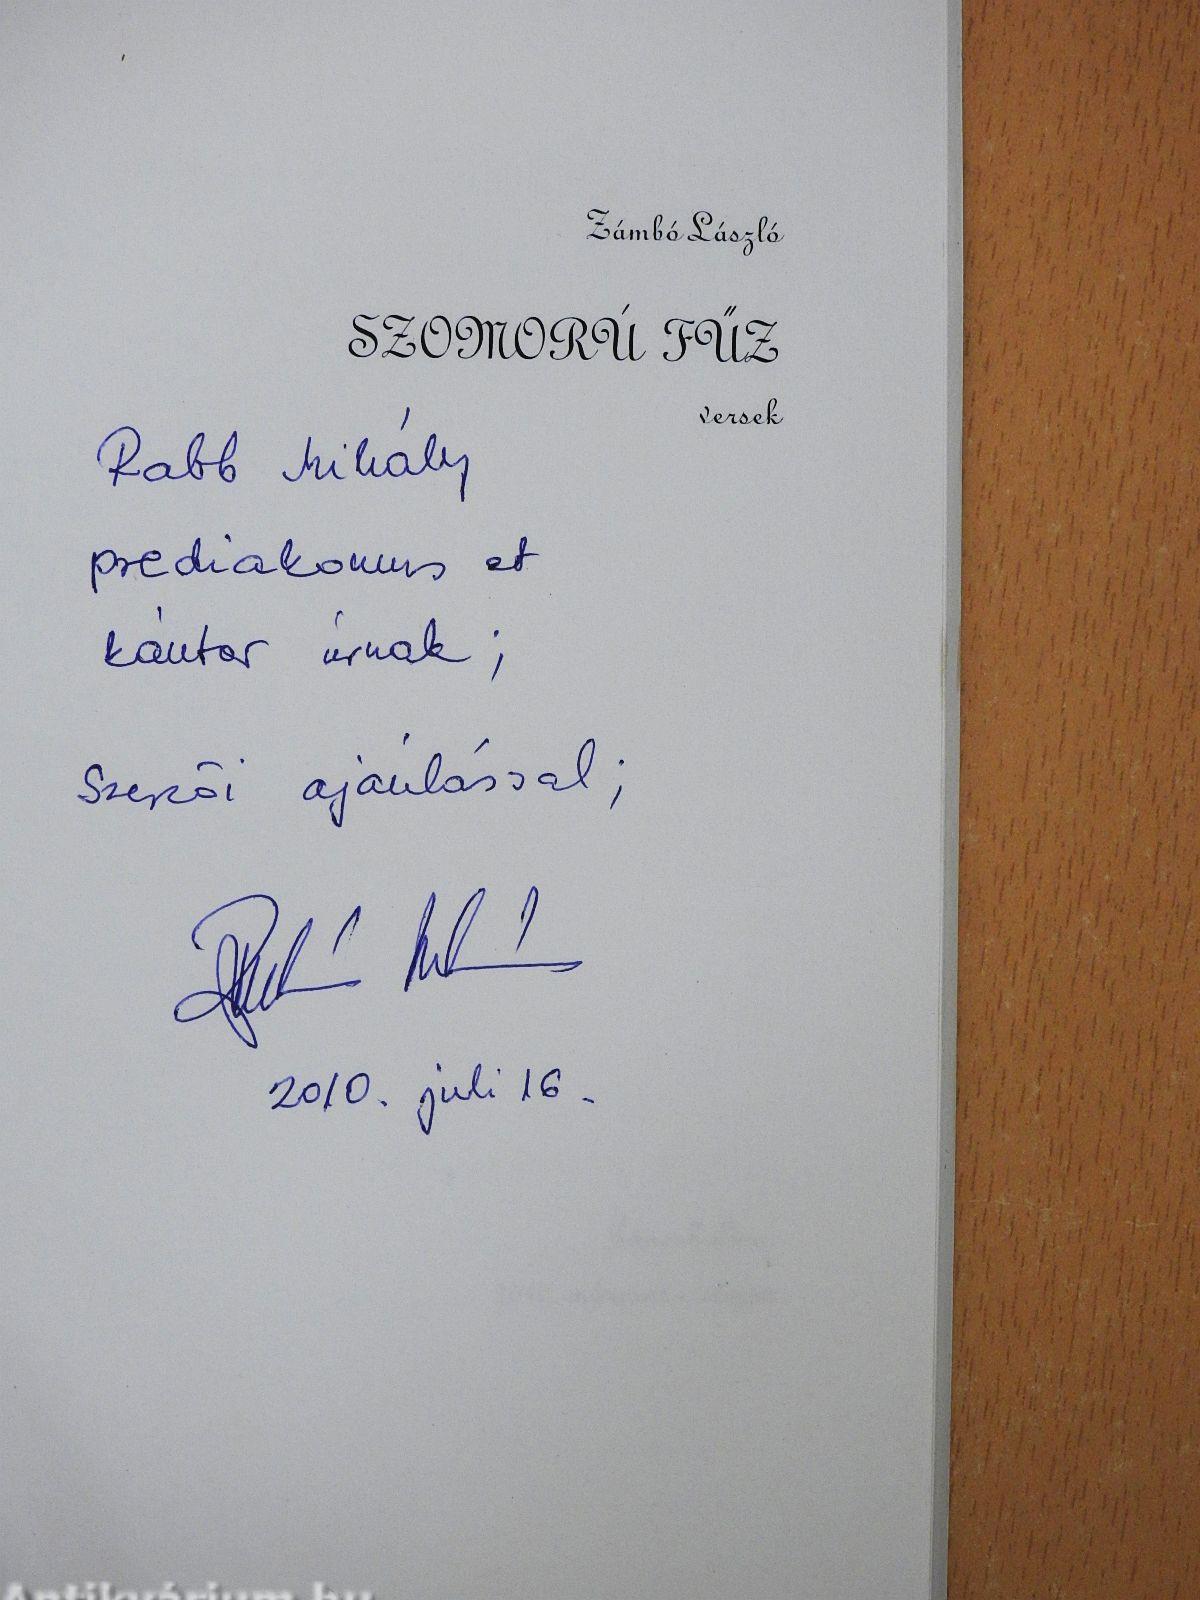 Zámbó László
SZOMORÚ FŰZ
versek
Rabb Mihály
prediakonus et
kántor úrnak;
Szerzői ajánlással;
2010. juli 16.
Antikvárium.hu